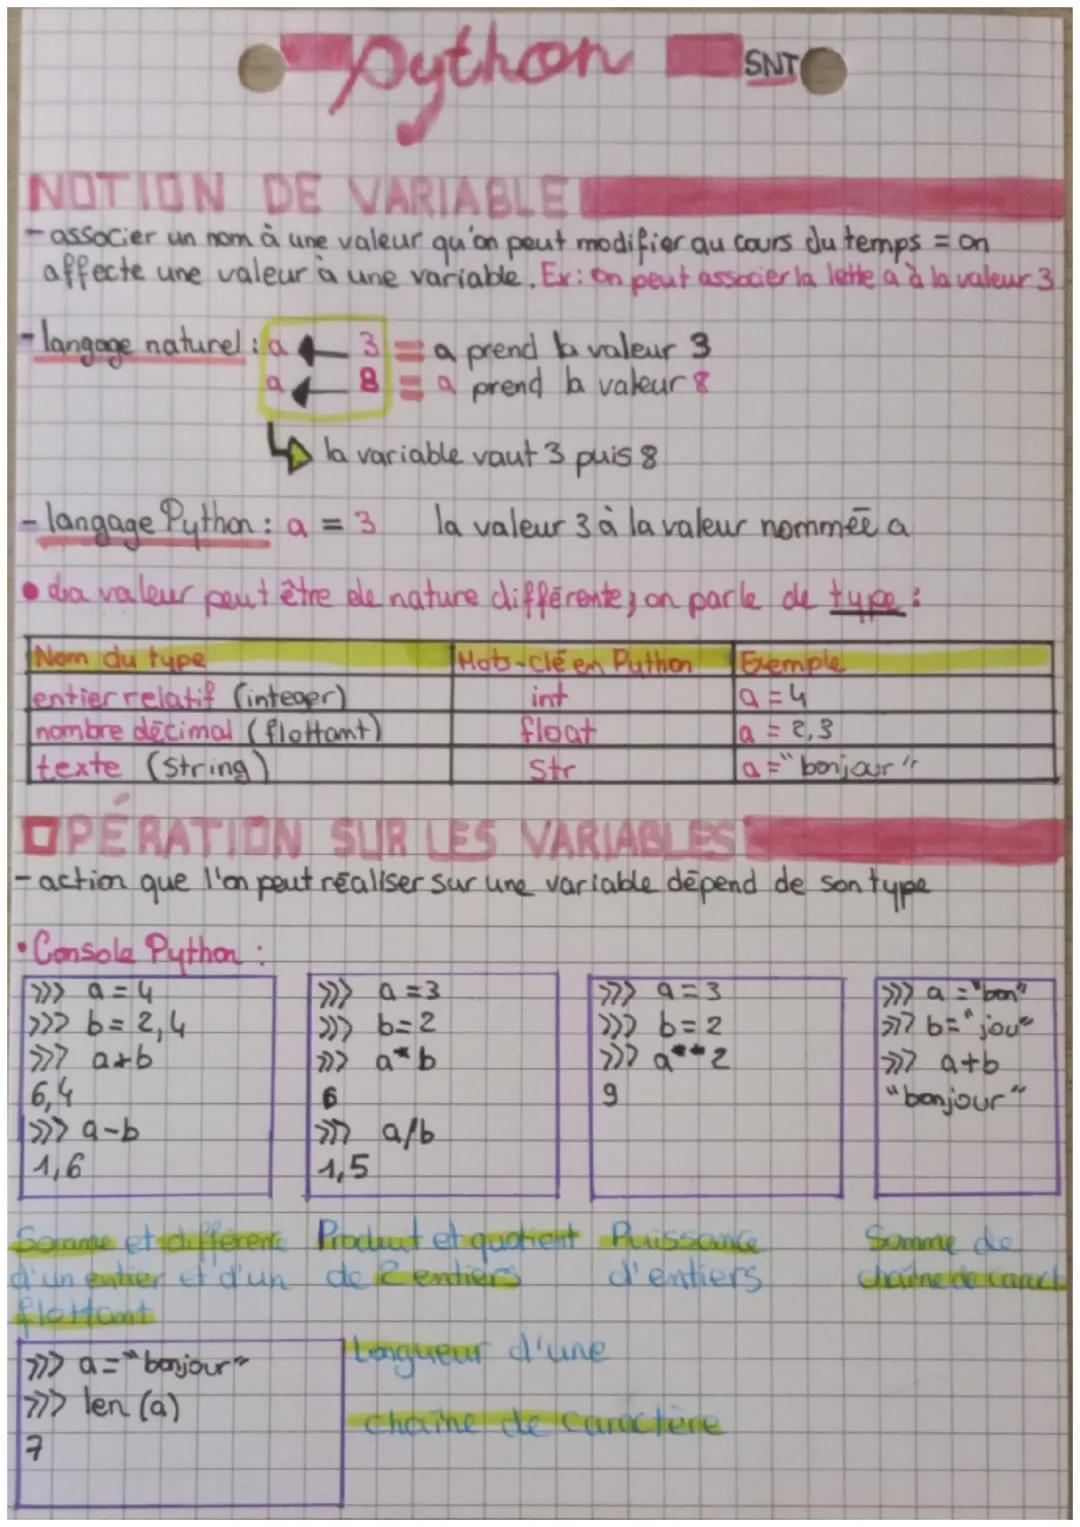 Python SNT
NOTION DE VARIABLE
- associer un nom à une valeur qu'on peut modifier au cours du temps = on
affecte une valeur à une variable. Ex: on peut associer la lette a à la valeur 3
- langage naturel : a ← 3 = a prend la valeur 3
a ← 8 = a prend la valeur 8
↳ la variable vaut 3 puis 8
- langage Python : a = 3 la valeur 3 à la valeur nommée a
• La valeur peut être de nature différente, on parle de type :
Nom du type Mots-clé en Python Exemple
entier relatif (integer) int a = 4
nombre décimal (flottant) float a = 2,3
texte (string) str a = "bonjour"
OPÉRATION SUR LES VARIABLES
- action que l'on peut réaliser sur une variable dépend de son type
• Console Python :
>>> a = 4
>>> b = 2,4
>>> a+b
6,4
>>> a-b
1,6
>>> a =3
>>> b=2
>>> a*b
6
>>> a/b
1,5
>>> a = 3
>>> b = 2
>>> a**2
9
>>> a = "bon"
>>> b="jour"
>>> a+b
"bonjour"
Somme et différence
d'un entier et d'un
flottant
Produit et quotient
de 2 entiers
Puissance
d'entiers
Somme de
chaîne de caract
>>> a="bonjour"
>>> len (a)
7
Longueur d'une
chaîne de caractère